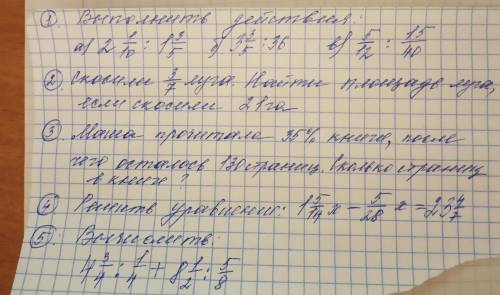 ① Выполнить действия:
а) 2 1/10 : 1 3/5 б) 3 3/5 : 36 в) 5/12 : 15/40
② Скосили 3/7 луга. Найти площадь луга,
если скосили 21 га
③ Маша прочитала 35% книги, после
чего осталось 130 страниц. Сколько страниц
в книге?
④ Решить уравнение: 1 5/14 x - 5/28 x = 23 4/7
⑤ Вычислить:
4 3/4 : 1/4 + 8 1/2 : 5/8